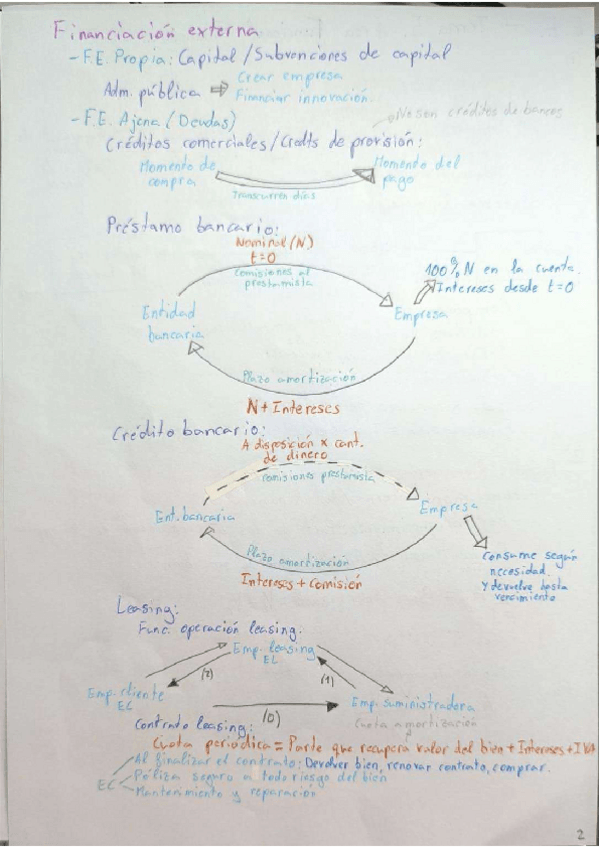 Financiación externa
- F.E. Propia: Capital / Subvenciones de capital
Adm. pública ⇒ Crear empresa
Financiar innovación.
- F.E. Ajena (Deudas)
No son créditos de bancos
Créditos comerciales / Credts de provisión:
Momento de compra
Momento del pago
Transcurren días
Préstamo bancario:
Nominal (N)
t=0
comisiones al
prestamista
100% N en la cuenta.
Intereses desde t=0
Entidad
bancaria
Empresa
Plazo amortización
N + Intereses
Crédito bancario:
A disposición x cant.
de dinero
comisiones prestamista
Ent. bancaria
Empresa
Plazo amortización
Intereses + Comisión
Consume según
necesidad.
Y devuelve hasta
vencimiento
Leasing:
Func. operación leasing:
Emp. leasing
EL
(2)
(1)
Emp. cliente
EC
(0)
Emp. suministradora
Cuota amortización
Contrato leasing:
Cuota periódica = Parte que recupera valor del bien + Intereses + IVA
EC
Al finalizar el contrato: Devolver bien, renovar contrato, comprar.
Póliza seguro a todo riesgo del bien
Mantenimiento y reparación
2